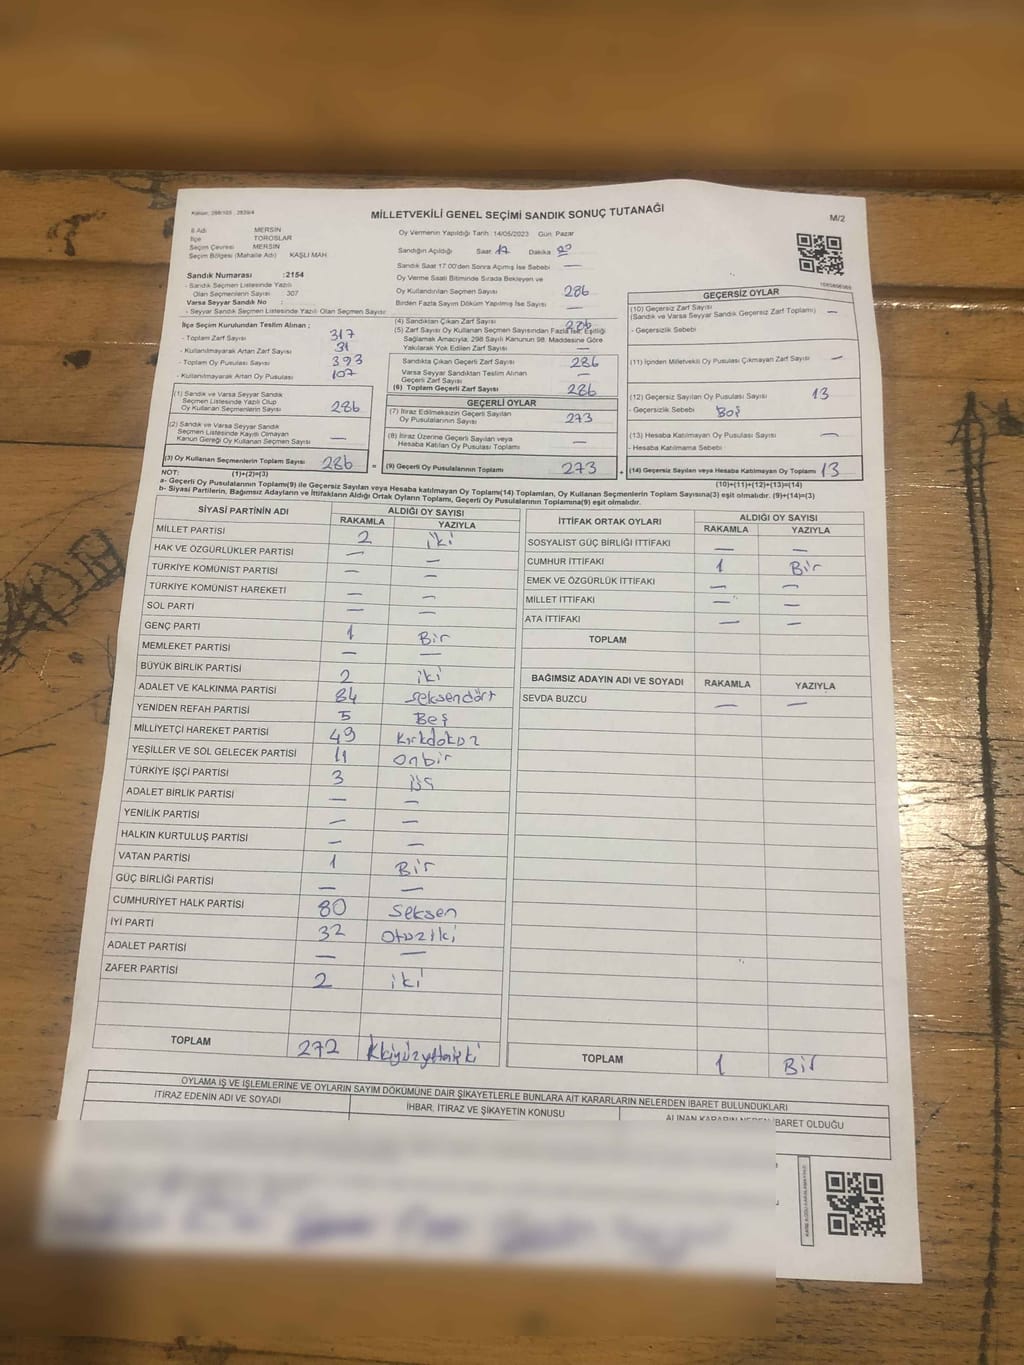 Kanun: 298/105 , 2839/4
MİLLETVEKİLİ GENEL SEÇİMİ SANDIK SONUÇ TUTANAĞI
M/2
İl Adı MERSİN
İlçe TOROSLAR
Seçim Çevresi MERSİN
Seçim Bölgesi (Mahalle Adı) KAŞLI MAH
Sandık Numarası :2154
- Sandık Seçmen Listesinde Yazılı
Olan Seçmenlerin Sayısı : 307
Varsa Seyyar Sandık No :
- Seyyar Sandık Seçmen Listesinde Yazılı Olan Seçmen Sayısı:
İlçe Seçim Kurulundan Teslim Alınan ;
- Toplam Zarf Sayısı 317
- Kullanılmayarak Artan Zarf Sayısı 31
- Toplam Oy Pusulası Sayısı 393
- Kullanılmayarak Artan Oy Pusulası 107
(1) Sandık ve Varsa Seyyar Sandık
Seçmen Listesinde Yazılı Olup
Oy Kullanan Seçmenlerin Sayısı 286
(2) Sandık ve Varsa Seyyar Sandık
Seçmen Listesinde Kayıtlı Olmayan
Kanun Gereği Oy Kullanan Seçmen Sayısı —
(3) Oy Kullanan Seçmenlerin Toplam Sayısı 286 =
Oy Vermenin Yapıldığı Tarih : 14/05/2023 Gün: Pazar
Sandığın Açıldığı Saat 17 Dakika
Sandık Saat 17:00'den Sonra Açılmış İse Sebebi —
Oy Verme Saati Bitiminde Sırada Bekleyen ve
Oy Kullandırılan Seçmen Sayısı 286
Birden Fazla Sayım Döküm Yapılmış İse Sayısı —
(4) Sandıktan Çıkan Zarf Sayısı 286
(5) Zarf Sayısı Oy Kullanan Seçmen Sayısından Fazla İse, Eşitliği
Sağlamak Amacıyla; 298 Sayılı Kanunun 98. Maddesine Göre
Yakılarak Yok Edilen Zarf Sayısı —
Sandıkta Çıkan Geçerli Zarf Sayısı 286
Varsa Seyyar Sandıktan Teslim Alınan
Geçerli Zarf Sayısı —
(6) Toplam Geçerli Zarf Sayısı 286
GEÇERLİ OYLAR
(7) İtiraz Edilmeksizin Geçerli Sayılan
Oy Pusulalarının Sayısı 273
(8) İtiraz Üzerine Geçerli Sayılan veya
Hesaba Katılan Oy Pusulası Toplamı —
(9) Geçerli Oy Pusulalarının Toplamı 273 +
GEÇERSİZ OYLAR
(10) Geçersiz Zarf Sayısı —
(Sandık ve Varsa Seyyar Sandık Geçersiz Zarf Toplamı)
- Geçersizlik Sebebi
(11) İçinden Milletvekili Oy Pusulası Çıkmayan Zarf Sayısı —
(12) Geçersiz Sayılan Oy Pusulası Sayısı 13
- Geçersizlik Sebebi Boş
(13) Hesaba Katılmayan Oy Pusulası Sayısı —
- Hesaba Katılmama Sebebi :
(14) Geçersiz Sayılan veya Hesaba Katılmayan Oy Toplamı 13
NOT: (1)+(2)=(3)
(10)+(11)+(12)+(13)=(14)
a- Geçerli Oy Pusulalarının Toplamı(9) ile Geçersiz Sayılan veya Hesaba katılmayan Oy Toplamı(14) Toplamları, Oy Kullanan Seçmenlerin Toplam Sayısına(3) eşit olmalıdır. (9)+(14)=(3)
b- Siyasi Partilerin, Bağımsız Adayların ve İttifakların Aldığı Ortak Oyların Toplamı, Geçerli Oy Pusulalarının Toplamına(9) eşit olmalıdır.
SİYASİ PARTİNİN ADI ALDIĞI OY SAYISI
RAKAMLA YAZIYLA
MİLLET PARTİSİ 2 iki
HAK VE ÖZGÜRLÜKLER PARTİSİ — —
TÜRKİYE KOMÜNİST PARTİSİ — —
TÜRKİYE KOMÜNİST HAREKETİ — —
SOL PARTİ — —
GENÇ PARTİ 1 Bir
MEMLEKET PARTİSİ — —
BÜYÜK BİRLİK PARTİSİ 2 iki
ADALET VE KALKINMA PARTİSİ 84 seksendört
YENİDEN REFAH PARTİSİ 5 Beş
MİLLİYETÇİ HAREKET PARTİSİ 49 Kırkdokuz
YEŞİLLER VE SOL GELECEK PARTİSİ 11 onbir
TÜRKİYE İŞÇİ PARTİSİ 3 üç
ADALET BİRLİK PARTİSİ — —
YENİLİK PARTİSİ — —
HALKIN KURTULUŞ PARTİSİ — —
VATAN PARTİSİ 1 Bir
GÜÇ BİRLİĞİ PARTİSİ — —
CUMHURİYET HALK PARTİSİ 80 seksen
İYİ PARTİ 32 otuziki
ADALET PARTİSİ — —
ZAFER PARTİSİ 2 iki
TOPLAM 272
İTTİFAK ORTAK OYLARI ALDIĞI OY SAYISI
RAKAMLA YAZIYLA
SOSYALİST GÜÇ BİRLİĞİ İTTİFAKI — —
CUMHUR İTTİFAKI 1 Bir
EMEK VE ÖZGÜRLÜK İTTİFAKI — —
MİLLET İTTİFAKI — —
ATA İTTİFAKI — —
TOPLAM
BAĞIMSIZ ADAYIN ADI VE SOYADI RAKAMLA YAZIYLA
SEVDA BUZCU — —
TOPLAM 1 Bir
OYLAMA İŞ VE İŞLEMLERİNE VE OYLARIN SAYIM DÖKÜMÜNE DAİR ŞİKAYETLERLE BUNLARA AİT KARARLARIN NELERDEN İBARET BULUNDUKLARI
İTİRAZ EDENİN ADI VE SOYADI İHBAR, İTİRAZ VE ŞİKAYETİN KONUSU ALINAN KARARIN NEDEN İBARET OLDUĞU